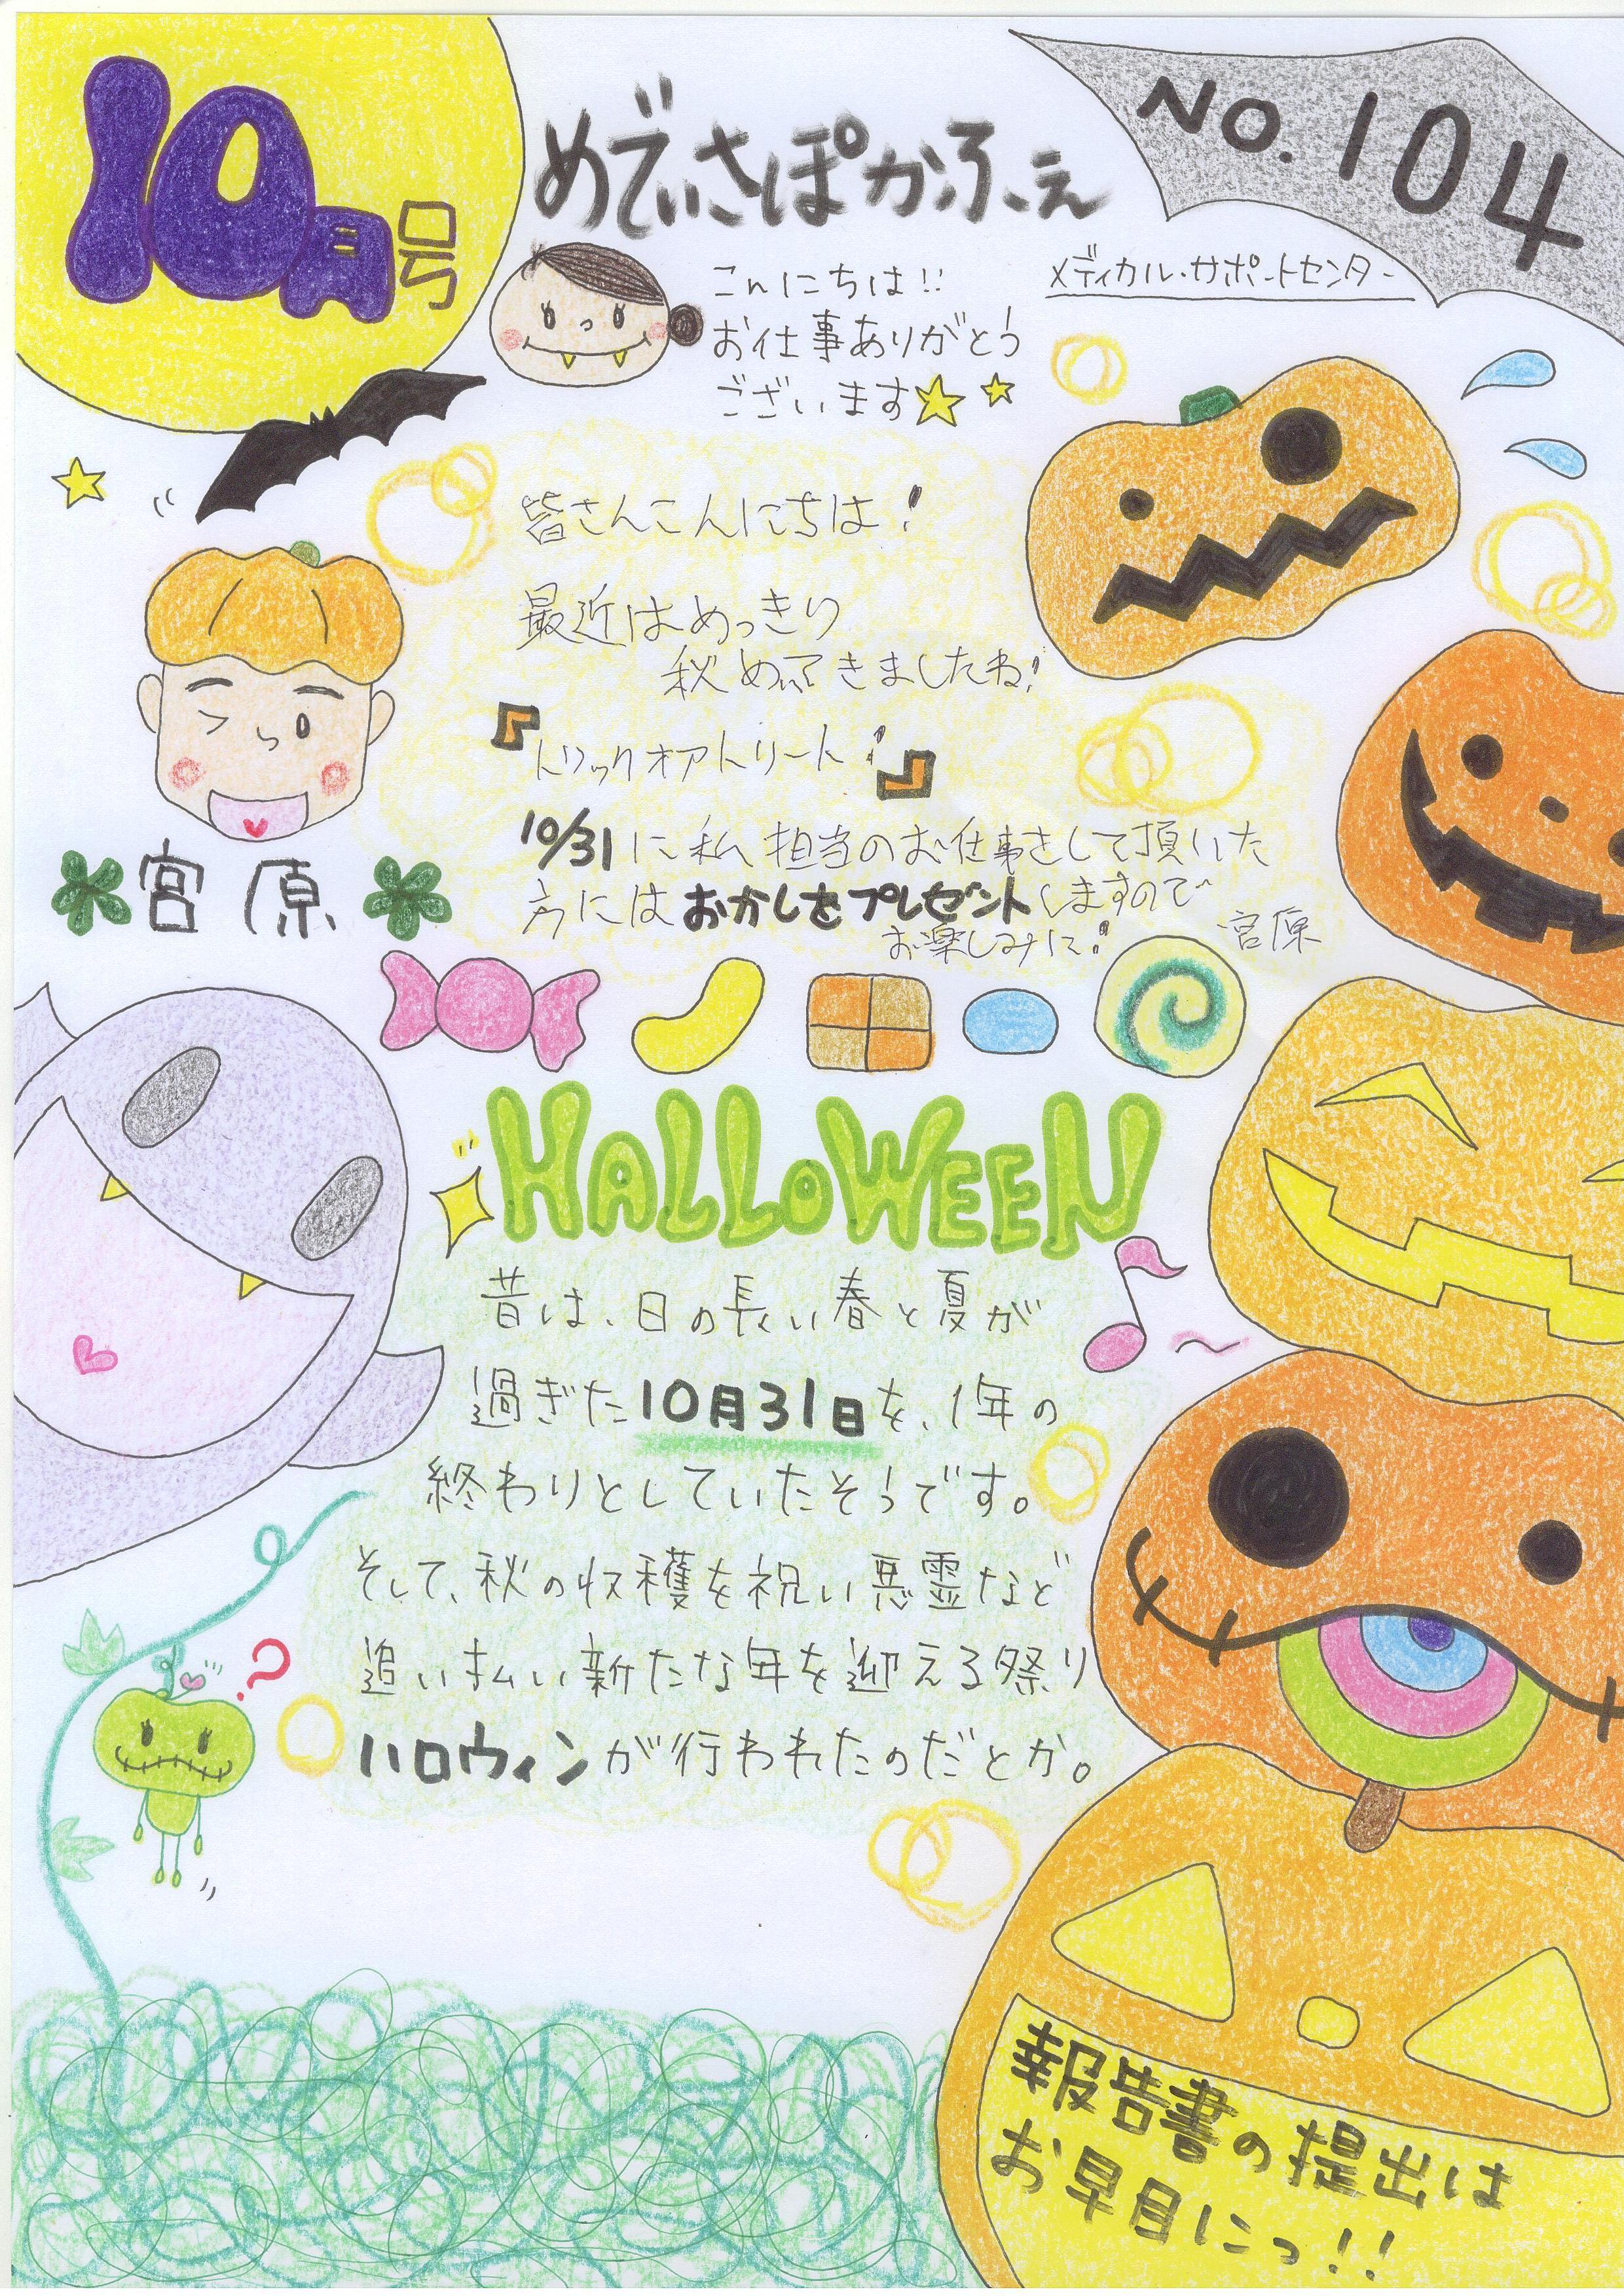 10月号
めでぃさぽかふぇ
NO.104
メディカル・サポートセンター
こんにちは!!
お仕事ありがとう
ございます
皆さんこんにちは!
最近はめっきり
秋めいてきましたね!
『トリックオアトリート!』
10/31に私担当のお仕事をして頂いた
方にはおかしをプレゼントしますので
お楽しみに!
宮原
宮原
HALLOWEEN
昔は、日の長い春と夏が
過ぎた10月31日を、1年の
終わりとしていたそうです。
そして、秋の収穫を祝い悪霊など
追い払い新たな年を迎える祭り
ハロウィンが行われたのだとか。
?
報告書の提出は
お早目にっ!!